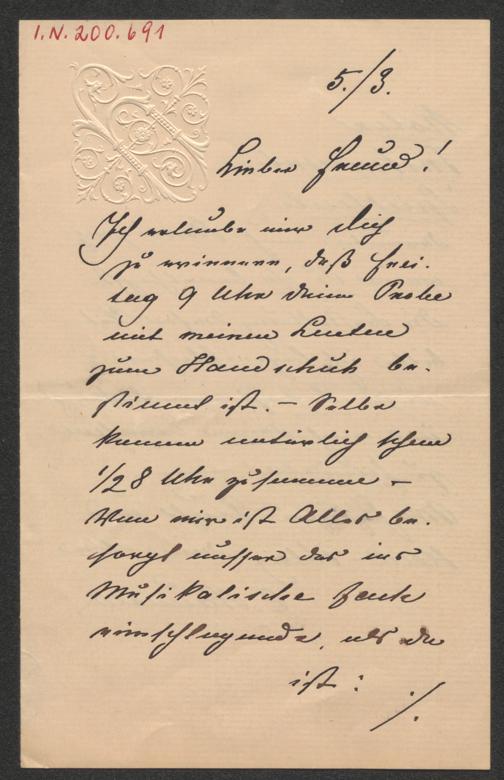 I.N. 200.691
5./3.
Lieber Freund!
Ich erlaube mir Dich
zu erinnern, daß Frei-
tag 9 Uhr Deine Probe
mit meinen Leuten
zum Handschuh be-
stimmt ist. – Selbe
kommen natürlich schon
1/2 8 Uhr zusammen –
Von mir ist Alles be-
sorgt ausser das ins
Musikalische Fach
einschlagende, als da
ist:
./.